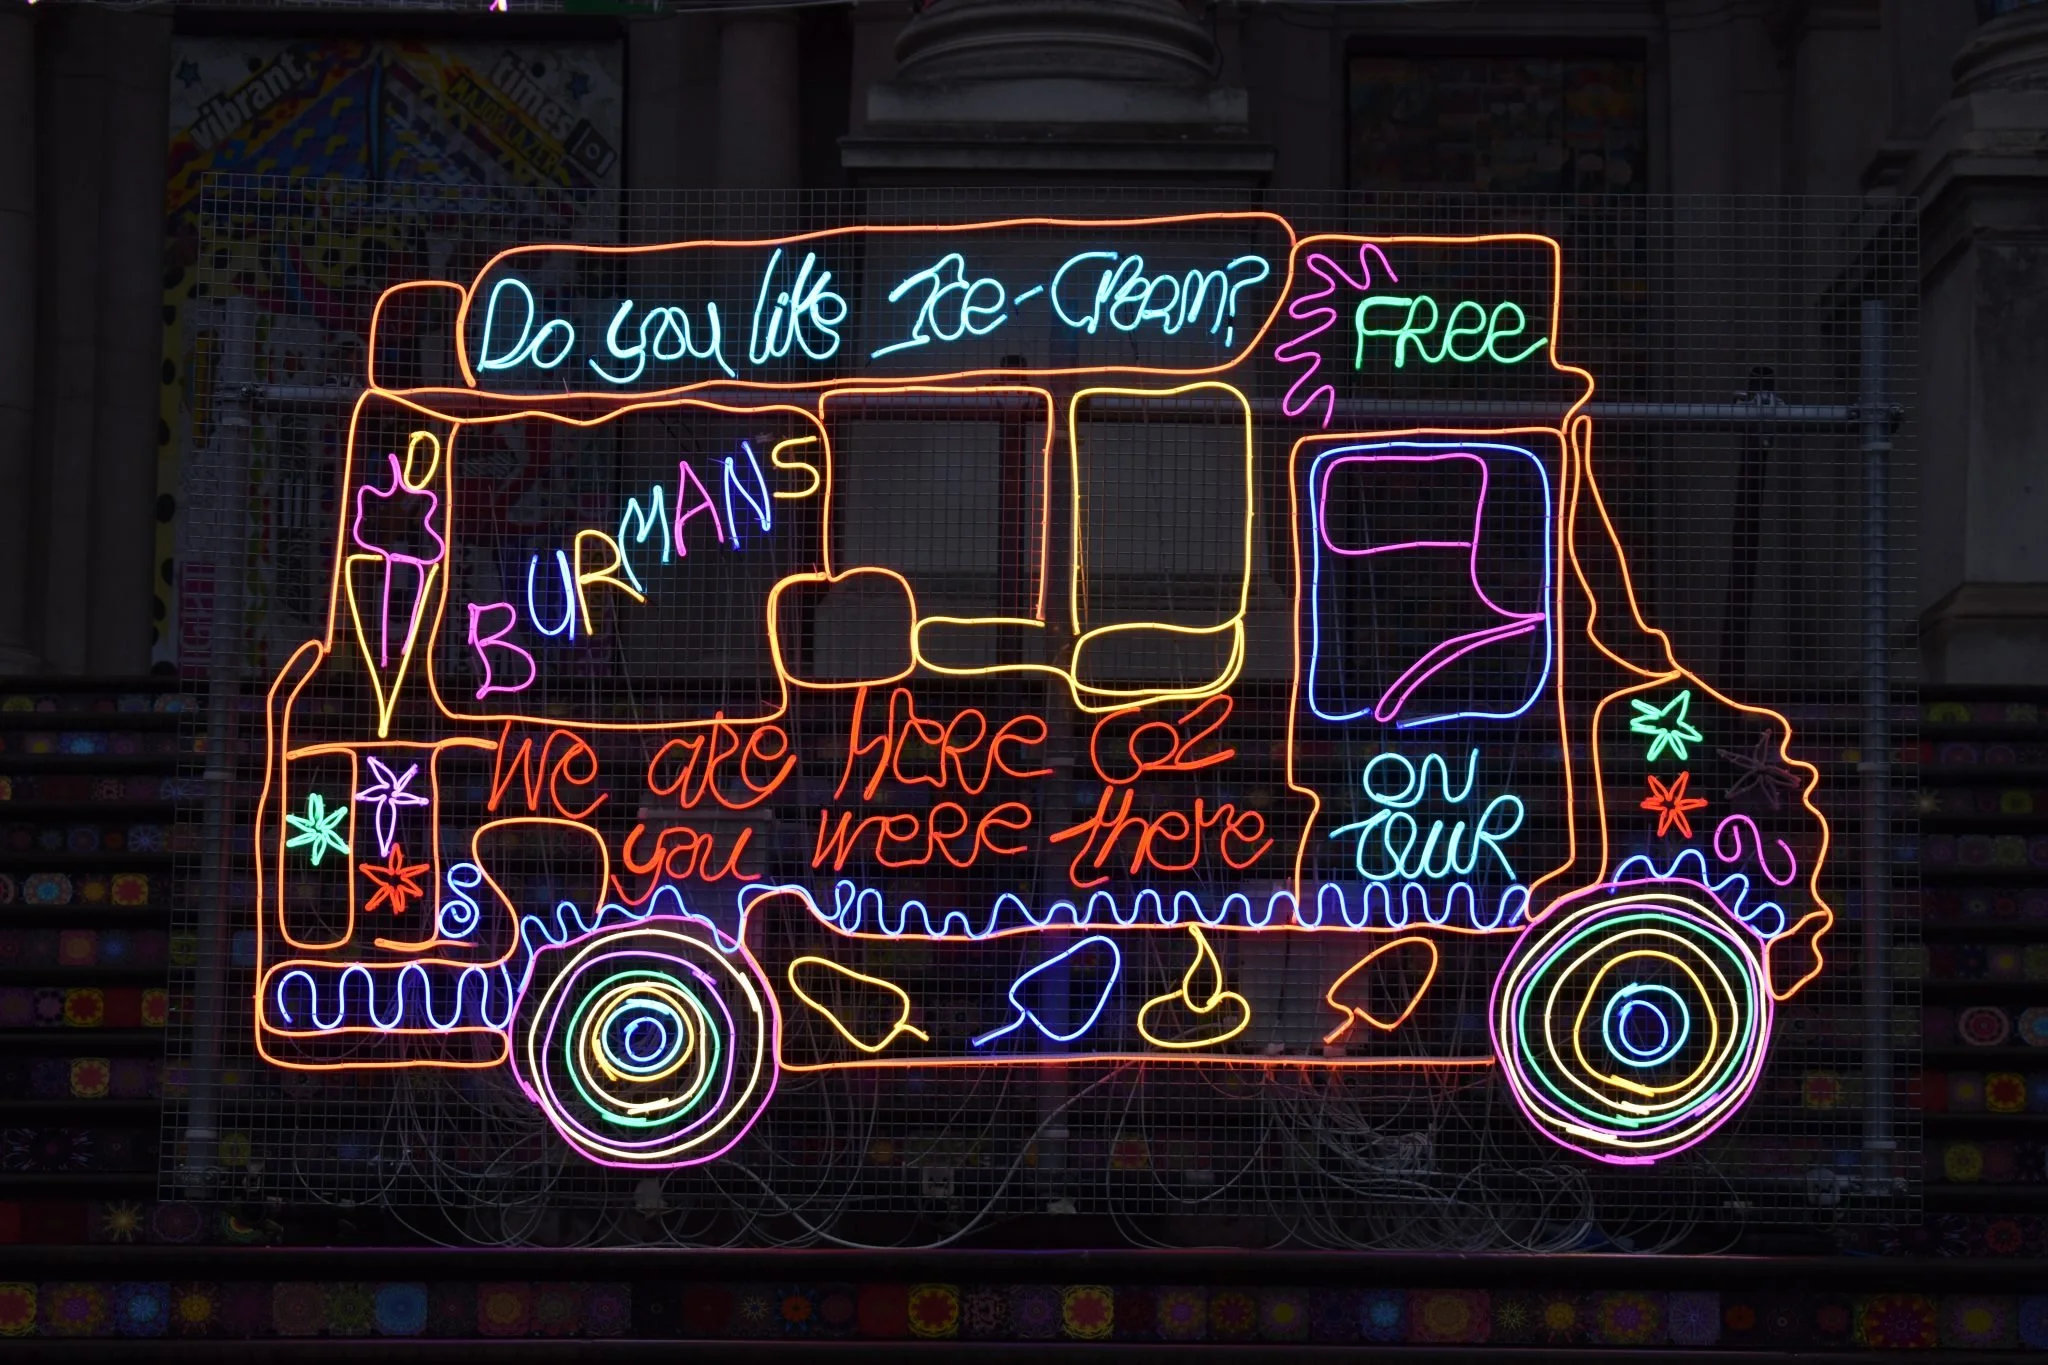 vibrant
times
MAJOR LAZER
Do you like Ice-Cream?
FREE
BURMANS
We are here coz
you were there
ON
TOUR